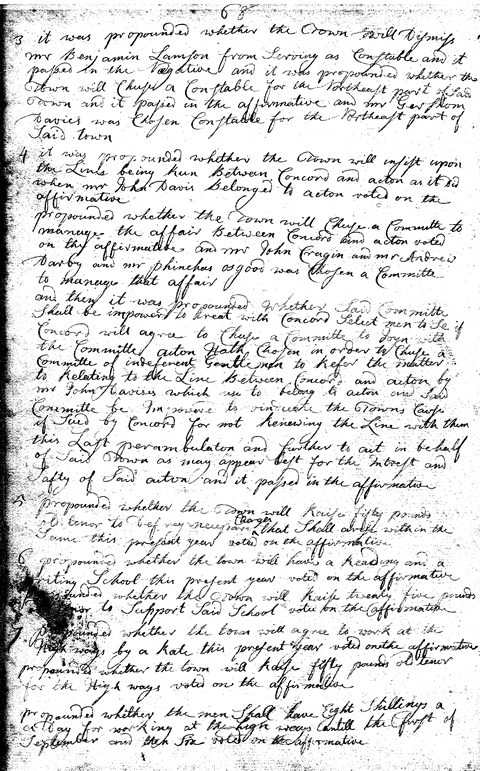 68
3 it was propounded whether the Town will Dismiss
mr Benjamin Lamson from Serving as Constable and it
passed in the Negative and it was propounded whether the
Town will Chuse a Constable for the Northeast part of Said
Town and it passed in the affirmative and mr Gershom
Davies was Chosen Constable for the Northeast part of
Said town
4 it was propounded whether the Town will insist upon
the Line being Run Between Concord and acton as it did
when mr John Davis Belonged to acton voted on the
affirmative
propounded whether the Town will Chuse a Committe to
manage the affair Between Concord and acton voted
on the affirmative and mr John Cragin and mr Andrew
Darby and mr phinehas osgood was Chosen a Committe
to manage that affair
and then it was propounded whether Said Committe
Shall be impowerd to treat with Concord Select men to Se if
Concord will agree to Chuse a Committe to Joyn with
the Committe acton Hath Chosen in order to Chuse a
Committe of indeferent Gentlemen to Refer the matter
to Relating to the Line Between Concord and acton by
mr John Davises which use to belong to acton and Said
Committe be Impowere to vindicate the Towns Cause
if Sued by Concord for not Renewing the Line with them
this Last perambulation and further to act in behalf
of Said Town as may appear best for the Intrest and
Safty of Said acton and it passed in the affirmative
5 propounded whether the Town will Raise fifty pounds
old tenor to Def ray necessary Charge that Shall arise within the
Same this present year voted on the affirmative
6 propounded whether the town will have a Reading and a
writing School this present year voted on the affirmative
propounded whether the Town will Raise twenty five pounds
tenor to Support Said School voted on the affirmative
7 propounded whether the town will agree to work at the
High ways by a Rate this present year voted on the affirmative
propounded whether the town will Raise fifty pounds old tenor
for the High ways voted on the affirmative
propounded whether the men Shall have Eight Shillings a
a Day for working at the high ways untill the first of
September and then Six voted on the affirmative